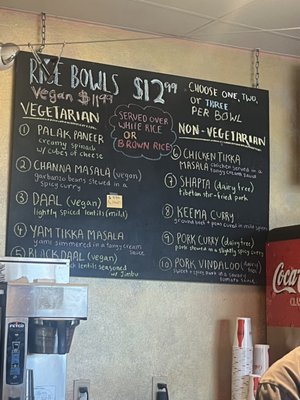 RICE BOWLS $12.99
Vegan $11.99
CHOOSE ONE, TWO,
OR THREE
PER BOWL
SERVED OVER
WHITE RICE
OR
BROWN RICE
VEGETARIAN
1 PALAK PANEER
creamy spinach
w/ cubes of cheese
2 CHANNA MASALA (vegan)
garbanzo beans stewed in a
spicy curry
3 DAAL (vegan)
lightly spiced lentils (mild)
4 YAM TIKKA MASALA
yams simmered in a tangy cream
sauce
5 BLACK DAAL (vegan)
black lentils seasoned
w/ Jimbu
NON-VEGETARIAN
6 CHICKEN TIKKA
MASALA chicken served in a
tangy cream sauce
7 SHAPTA (dairy free)
tibetan stir-fried pork
8 KEEMA CURRY
ground beef + peas cured in mild spices
9 PORK CURRY (dairy free)
pork stewed in a slightly spicy curry
10 PORK VINDALOO (dairy free)
sweet + spicy pork in a savory
tomato sauce
Coca